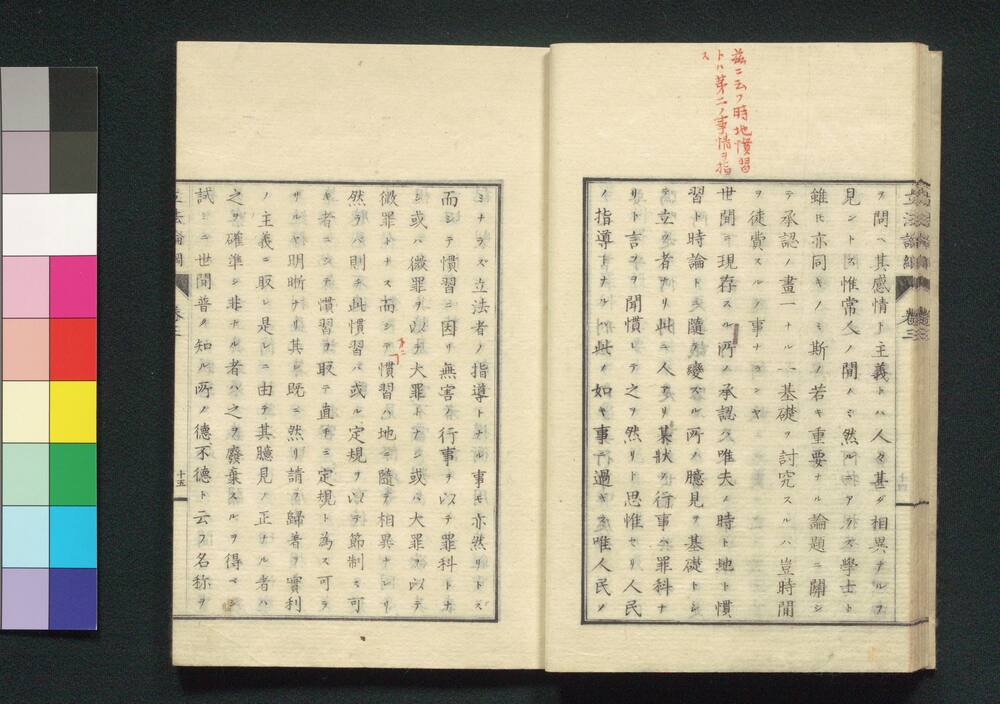 茲ニ云フ時地慣習
トハ第二ノ事情ヲ指
ス
ヲ問ヘ其感情ト主義トハ人々甚ダ相異ナルヲ
見ントス惟常人ノ間ノミ然ルニアラズ學士ト
雖ヒ亦同キノミ斯ノ若キ重要ナル論題ニ關シ
テ承認ノ畫一ナル一基礎ヲ討究スルハ豈時間
ヲ徒費スルノ事ナランヤ
世間ニ現存スル所ノ承認ハ唯夫ノ時ト地ト慣
習ト時論トニ隨テ變スル所ノ臆見ヲ基礎トシ
テ立ツ者ナリ此ニ人アリ某狀ノ行事ハ罪科ナ
リト言フヲ聞慣レテ之ヲ然リト思惟セリ人民
ノ指導トナルハ此ノ如キ事ニ過キス唯人民ノ
ミナラズ立法者ノ指導トナル事モ亦然リトス
而シテ慣習ニ因リ無害ノ行事ヲ以テ罪科トナ
シ或ハ微罪ヲ以テ大罪トナシ或ハ大罪ヲ以テ
微罪トナス而シテ慣習ハ地ニ隨テ相異ナレリ
然ラバ則チ此慣習ハ或ル定規ヲ以テ節制ス可
キ者ニシテ慣習ヲ取テ直チニ定規ト為ス可ラ
サルヤ明晰ナリ其レ既ニ然リ請フ歸着ヲ實利
ノ主義ニ取レ是レニ由テ其臆見ノ正ナル者ハ
之ヲ確準シ非ナル者ハ之ヲ廢棄スルヲ得ベシ
試ミニ世間普ク知ル所ノ德不德ト云フ名称ヲ
立法論綱
卷三
十五